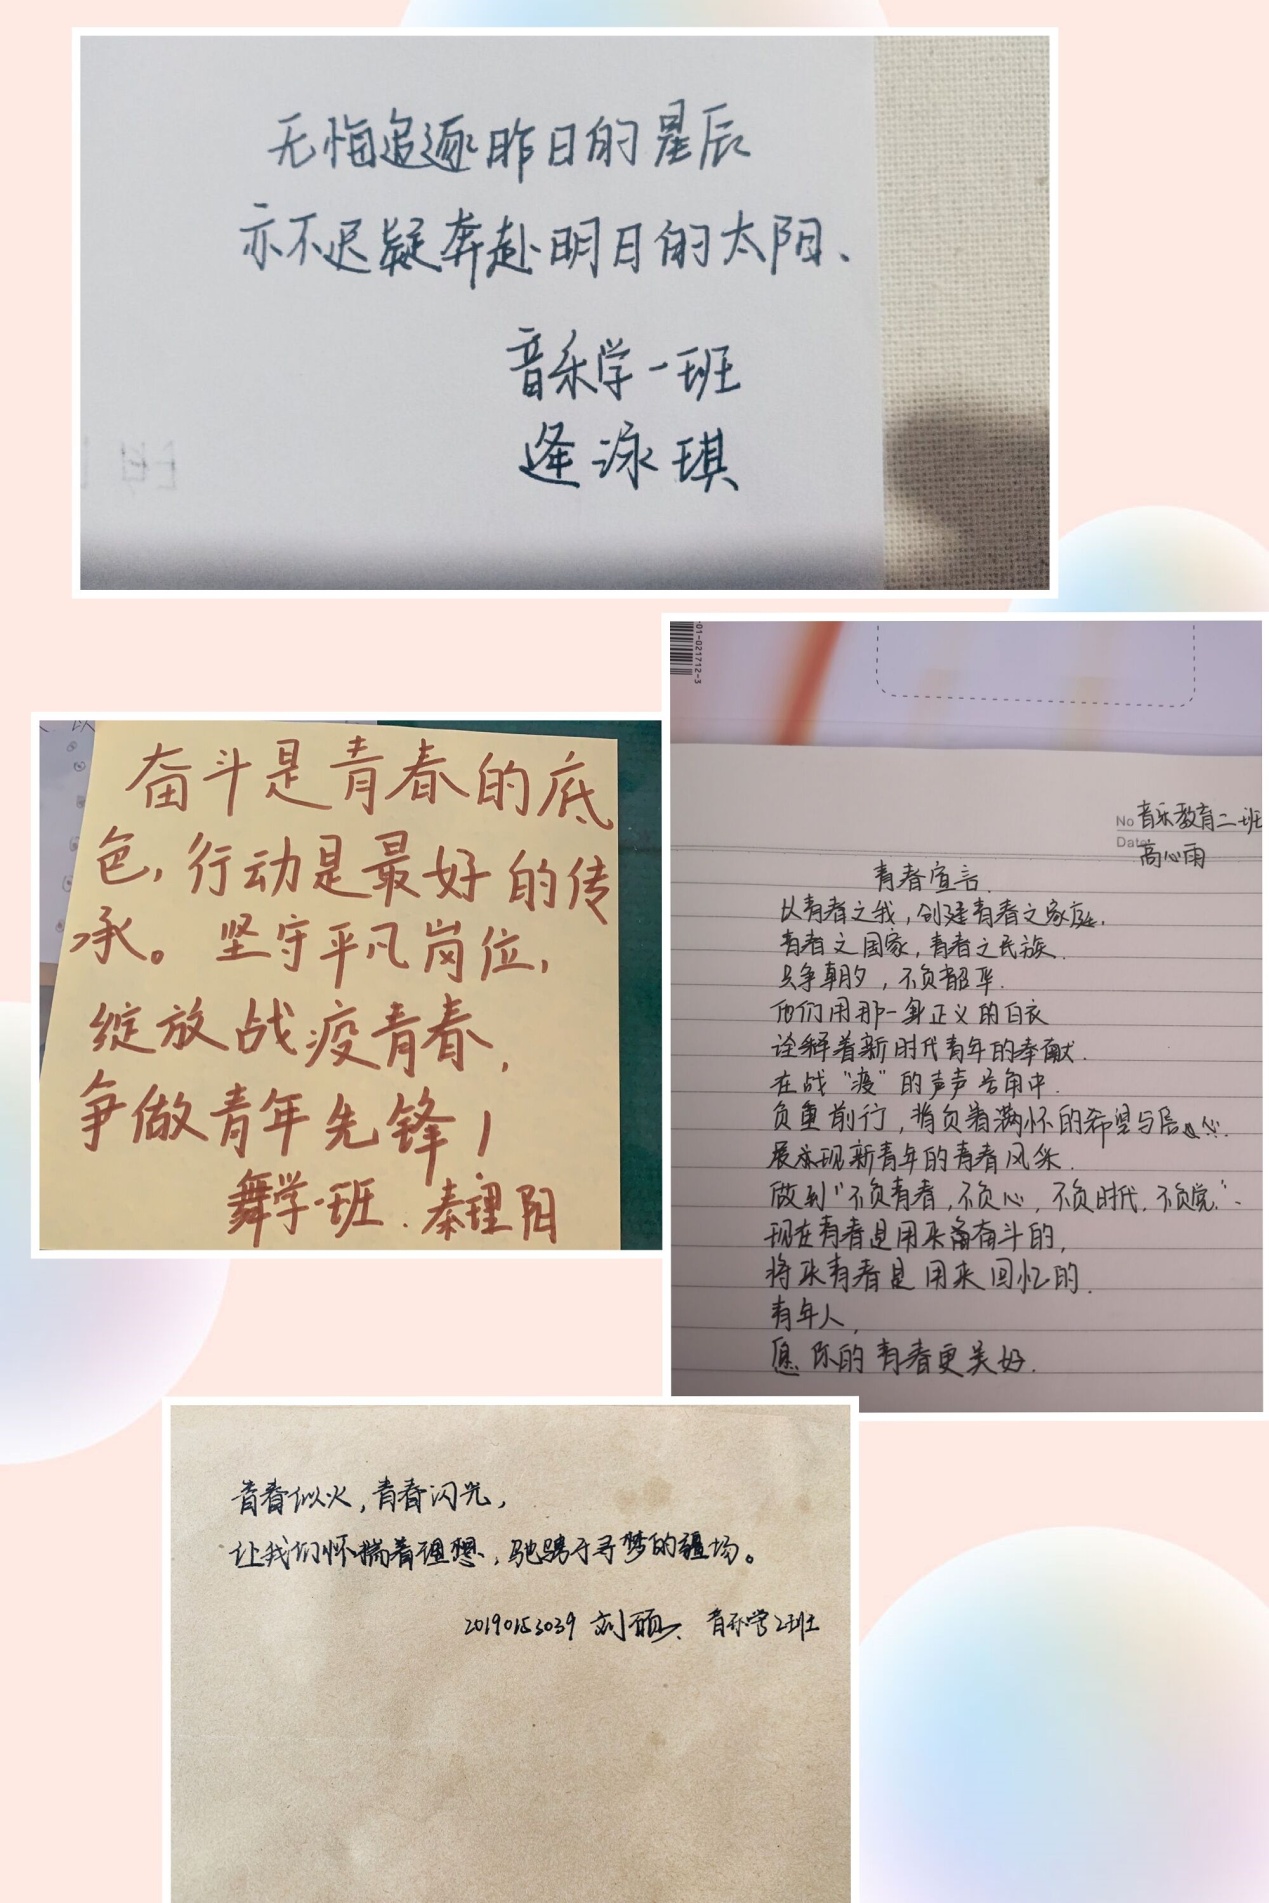 无悔追逐昨日的星辰
亦不迟疑奔赴明日的太阳、
音乐学一班
逄泳琪
奋斗是青春的底
色,行动是最好的传
承。坚守平凡岗位,
绽放战疫青春,
争做青年先锋!
舞学一班.秦理阳
01-021712-3
No 音乐教育二班
Date 高心雨
青春宣言.
以青春之我,创建青春之家庭.
青春之国家,青春之民族.
只争朝夕,不负韶华.
他们用那一身正义的白衣
诠释着新时代青年的奉献.
在战“疫”的声声号角中.
负重前行,背负着满怀的希望与信心.
展现新青年的青春风采.
做到“不负青春,不负心,不负时代,不负党.”
现在青春是用来奋斗的,
将来青春是用来回忆的.
青年人,
愿你的青春更美好.
青春似火,青春闪光,
让我们怀揣着理想,驰骋于寻梦的疆场。
20190153039 刘硕、音乐学2班